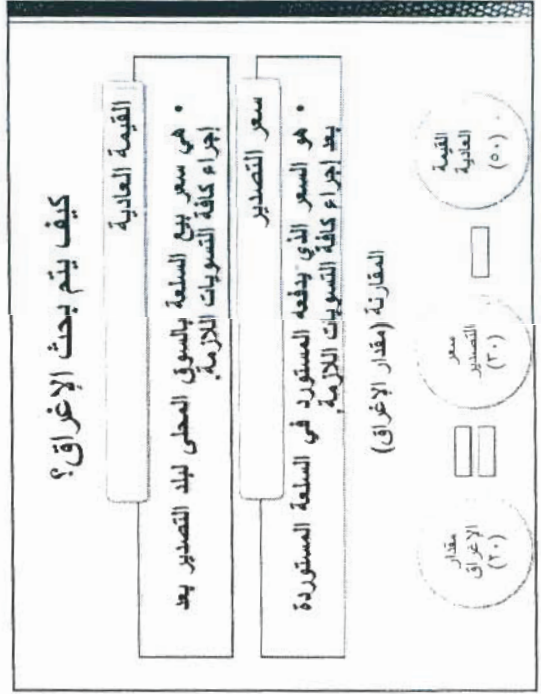 كيف يتم بحث الإغراق؟
القيمة العادية
• هي سعر بيع السلعة بالسوق المحلى لبلد التصدير بعد
إجراء كافة التسويات اللازمة.
سعر التصدير
• هو السعر الذي يدفعه المستورد في السلعة المستوردة
بعد إجراء كافة التسويات اللازمة.
المقارنة (مقدار الإغراق)
القيمة
العادية
(٥٠)
سعر
التصدير
(٣٠)
مقدار
الإغراق
(٢٠)